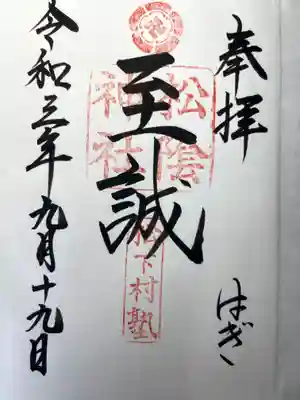 奉拝
はぎ
至誠
松陰神社
松下村塾
令和三年九月十九日